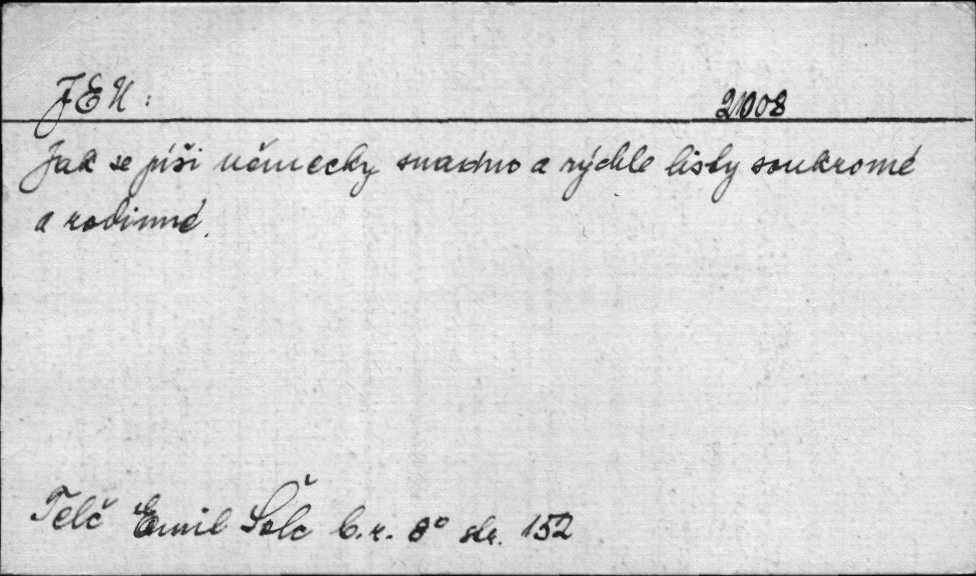 JEN:
21008
Jak se píši německy snadno a rychle listy soukromé
a rodinné.
Telč Emil Šolc b.r. 8° str. 152